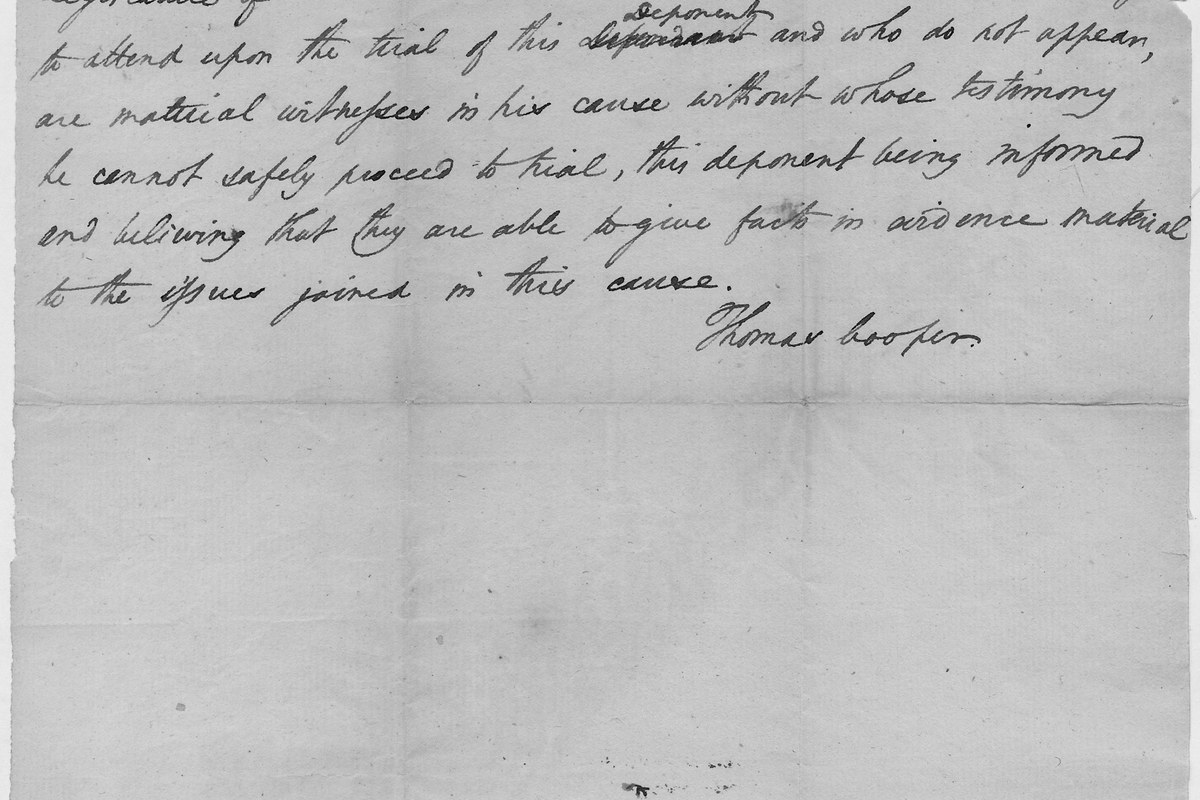 of
Deponent
to attend upon the trial of this and who do not appear,
are material witnesses in his cause without whose testimony
he cannot safely proceed to trial, this deponent being informed
and believing that they are able to give facts in evidence material
to the issues joined in this cause.
Thomas Cooper.